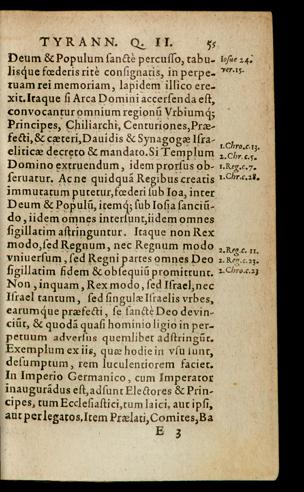 TYRANN. Q. II. 55
Deum & Populum sanctè percusso, tabu- Iosue 24.
lisque fœderis ritè consignatis, in perpe- ver.15.
tuam rei memoriam, lapidem illico ere-
xit. Itaque si Arca Domini accersenda est,
convocantur omnium regionū Vrbiumq;
Principes, Chiliarchi, Centuriones, Præ-
fecti, & cæteri, Dauidis & Synagogæ Isra-
eliticæ decreto & mandato. Si Templum 1.Chro.c.13.
Domino extruendum, idem prorsus ob- 2.Chr.c.5.
seruatur. Ac ne quidquā Regibus creatis 1.Reg.c.7.
immutatum putetur, fœderi sub Ioa, inter 1.Chr.c.28.
Deum & Populū, itemq; sub Iosia sanciū-
do, iidem omnes intersunt, iidem omnes
sigillatim astringuntur. Itaque non Rex
modo, sed Regnum, nec Regnum modo
vniuersum, sed Regni partes omnes Deo 2.Reg.c. 11.
sigillatim fidem & obsequiū promittunt. 2.Reg.c.23.
Non, inquam, Rex modo, sed Israel, nec 2.Chro.c.23
Israel tantum, sed singulæ Israelis vrbes,
earumque præfecti, se sanctè Deo devin-
ciūt, & quodā quasi hominio ligio in per-
petuum adversus quemlibet adstringūt.
Exemplum ex iis, quæ hodie in vsu sunt,
desumptum, rem luculentiorem faciet.
In Imperio Germanico, cum Imperator
inaugurādus est, adsunt Electores & Prin-
cipes, tum Ecclesiastici, tum laici, aut ipsi,
aut per legatos. Item Prælati, Comites, Ba
E 3